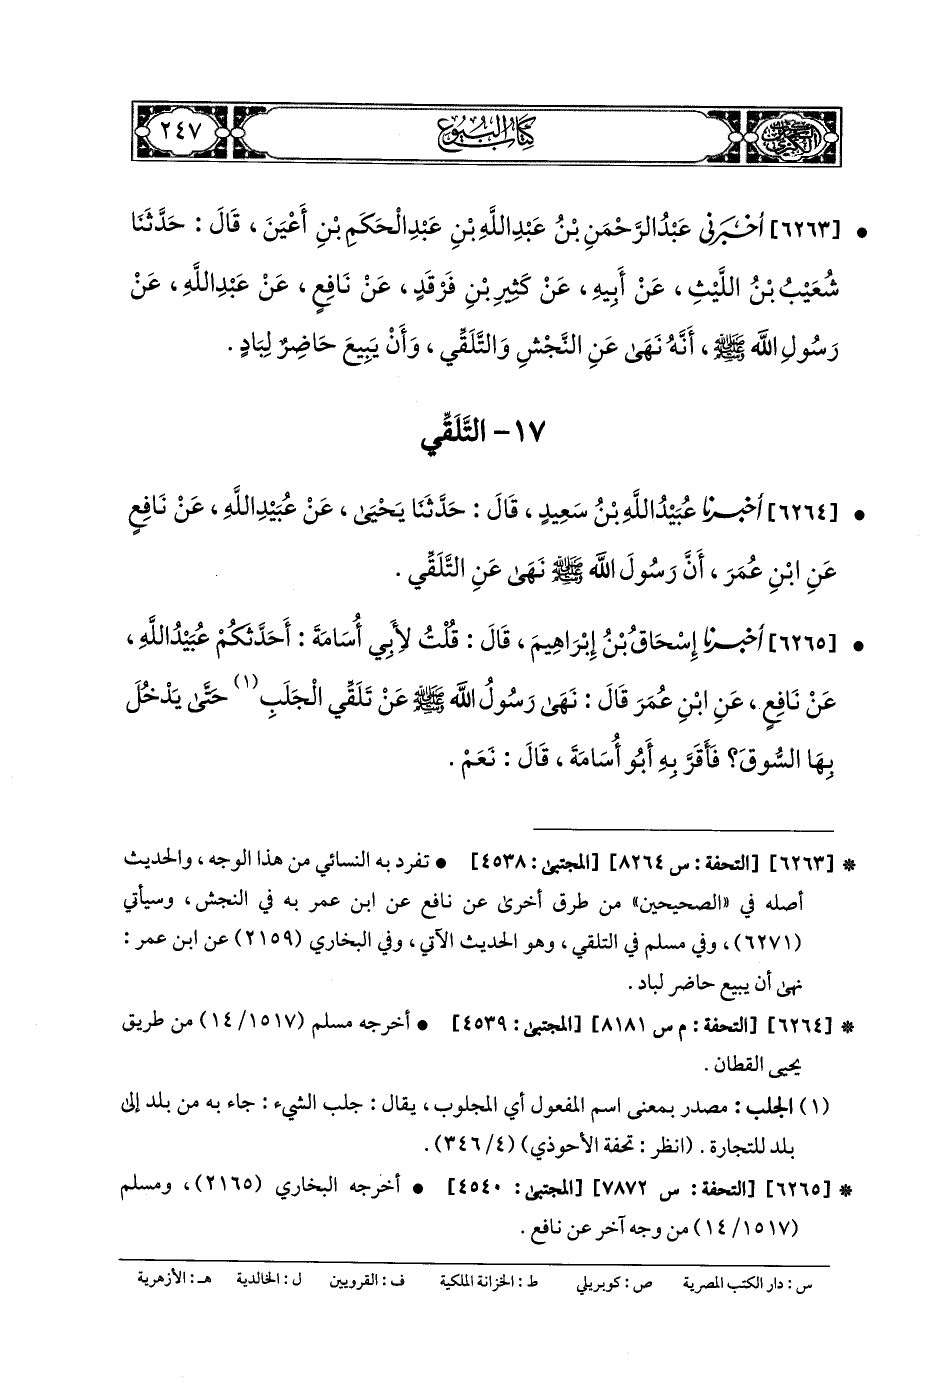 كتاب البيوع
٢٤٧
• [٦٢٦٣] أَخْبَرَنِي عَبْدُالرَّحْمَنِ بْنُ عَبْدِاللَّهِ بْنِ عَبْدِالْحَكَمِ بْنِ أَعْيَنَ ، قَالَ : حَدَّثَنَا
شُعَيْبُ بْنُ اللَّيْثِ ، عَنْ أَبِيهِ ، عَنْ كَثِيرِ بْنِ فَرْقَدٍ ، عَنْ نَافِعٍ ، عَنْ عَبْدِاللَّهِ ، عَنْ
رَسُولِ اللَّه ﷺ ، أَنَّهُ نَهَىٰ عَنِ النَّجْشِ وَالتَّلَقِّي ، وَأَنْ يَبِيعَ حَاضِرٌ لِبَادٍ .
١٧- التَّلَقِّي
• [٦٢٦٤] أَخْبَرَنَا عُبَيْدُاللَّهِ بْنُ سَعِيدٍ ، قَالَ : حَدَّثَنَا يَحْيَىٰ ، عَنْ عُبَيْدِاللَّهِ ، عَنْ نَافِعٍ
عَنِ ابْنِ عُمَرَ ، أَنَّ رَسُولَ اللَّه ﷺ نَهَىٰ عَنِ التَّلَقِّي .
• [٦٢٦٥] أَخْبَرَنَا إِسْحَاقُ بْنُ إِبْرَاهِيمَ ، قَالَ : قُلْتُ لِأَبِي أُسَامَةَ : أَحَدَّثَكُمْ عُبَيْدُاللَّهِ ،
عَنْ نَافِعٍ ، عَنِ ابْنِ عُمَرَ قَالَ : نَهَىٰ رَسُولُ اللَّه ﷺ عَنْ تَلَقِّي الْجَلَبِ(١) حَتَّىٰ يَدْخُلَ
بِهَا السُّوقَ؟ فَأَقَرَّ بِهِ أَبُو أُسَامَةَ ، قَالَ : نَعَمْ .
* [٦٢٦٣] [التحفة : س ٨٢٦٤] [المجتبىٰ : ٤٥٣٨] • تفرد به النسائي من هذا الوجه ، والحديث
أصله في «الصحيحين» من طرق أخرىٰ عن نافع عن ابن عمر به في النجش ، وسيأتي
(٦٢٧١) ، وفي مسلم في التلقي ، وهو الحديث الآتي ، وفي البخاري (٢١٥٩) عن ابن عمر :
نهىٰ أن يبيع حاضر لباد .
* [٦٢٦٤] [التحفة : م س ٨١٨١] [المجتبىٰ : ٤٥٣٩] • أخرجه مسلم (١٤/١٥١٧) من طريق
يحيى القطان .
(١) الجلب : مصدر بمعنى اسم المفعول أي المجلوب ، يقال : جلب الشيء : جاء به من بلد إلىٰ
بلد للتجارة . (انظر : تحفة الأحوذي) (٣٤٦/٤) .
* [٦٢٦٥] [التحفة : س ٧٨٧٢] [المجتبىٰ : ٤٥٤٠] • أخرجه البخاري (٢١٦٥) ، ومسلم
(١٤/١٥١٧) من وجه آخر عن نافع .
س : دار الكتب المصرية ص : كوبريلي ط : الخزانة الملكية ف : القرويين ل : الخالدية هـ : الأزهرية